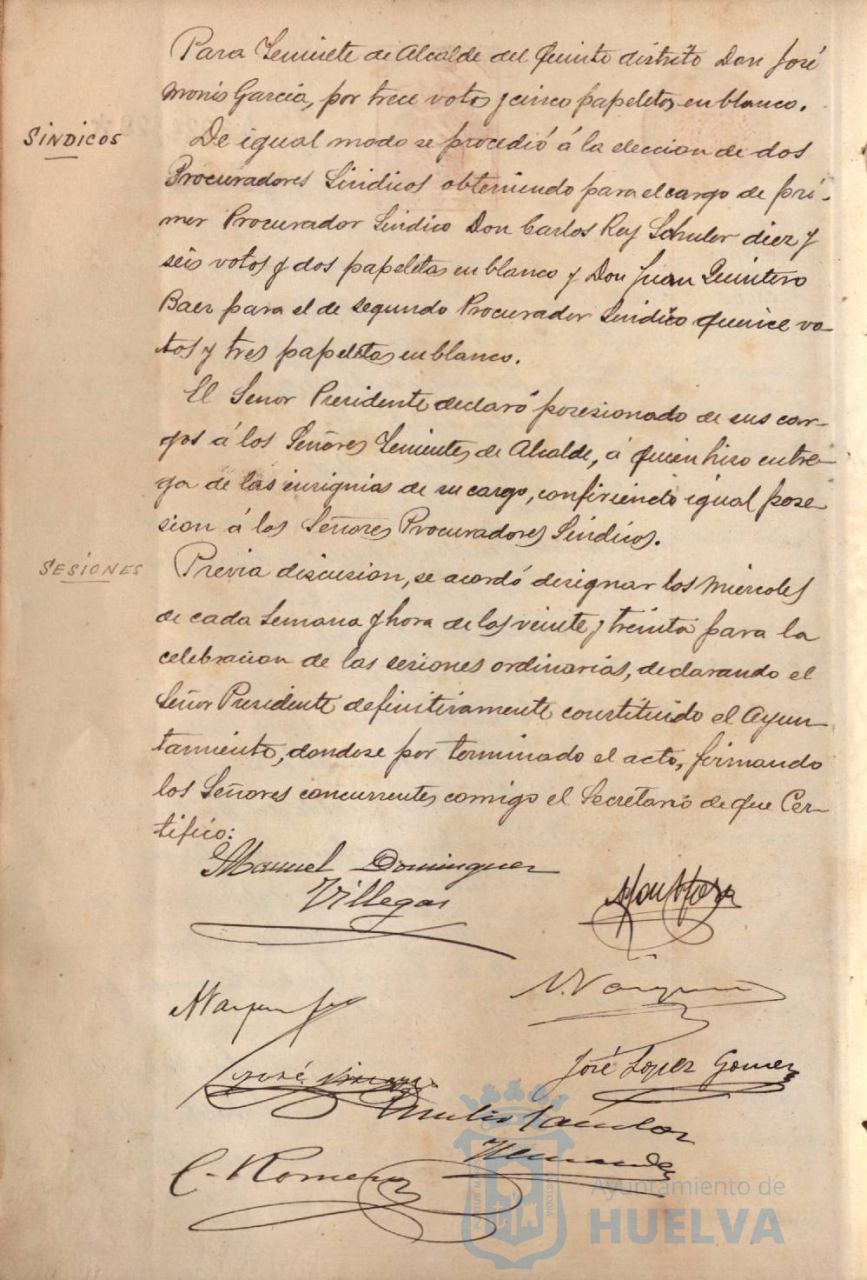 Para Teniente de Alcalde del Quinto distrito Don José
Monís García, por trece votos y cinco papeletas en blanco.
SINDICOS
De igual modo se procedió á la eleccion de dos
Procuradores Síndicos obteniendo para el cargo de pri-
mer Procurador Síndico Don Carlos Rey Schuler diez y
seis votos y dos papeletas en blanco y Don Juan Quintero
Baez para el de segundo Procurador Síndico quince vo-
tos y tres papeletas en blanco.
El Señor Presidente declaró posesionado de sus car-
gos á los Señores Tenientes de Alcalde, á quien hizo entre-
ga de las insignias de su cargo, confiriendo igual pose-
sion á los Señores Procuradores Síndicos.
SESIONES
Previa discusion, se acordó designar los Miercoles
de cada semana y hora de las veinte y treinta para la
celebracion de las sesiones ordinarias, declarando el
Señor Presidente definitivamente constituido el Ayun-
tamiento, dandose por terminado el acto, firmando
los Señores concurrentes comigo el Secretario de que Cer-
tifico:
Manuel Dominguez
Villegas
José Lopez Gomez
Emilio Sanchez
Hernandez
C. Romero
Ayuntamiento de
HUELVA